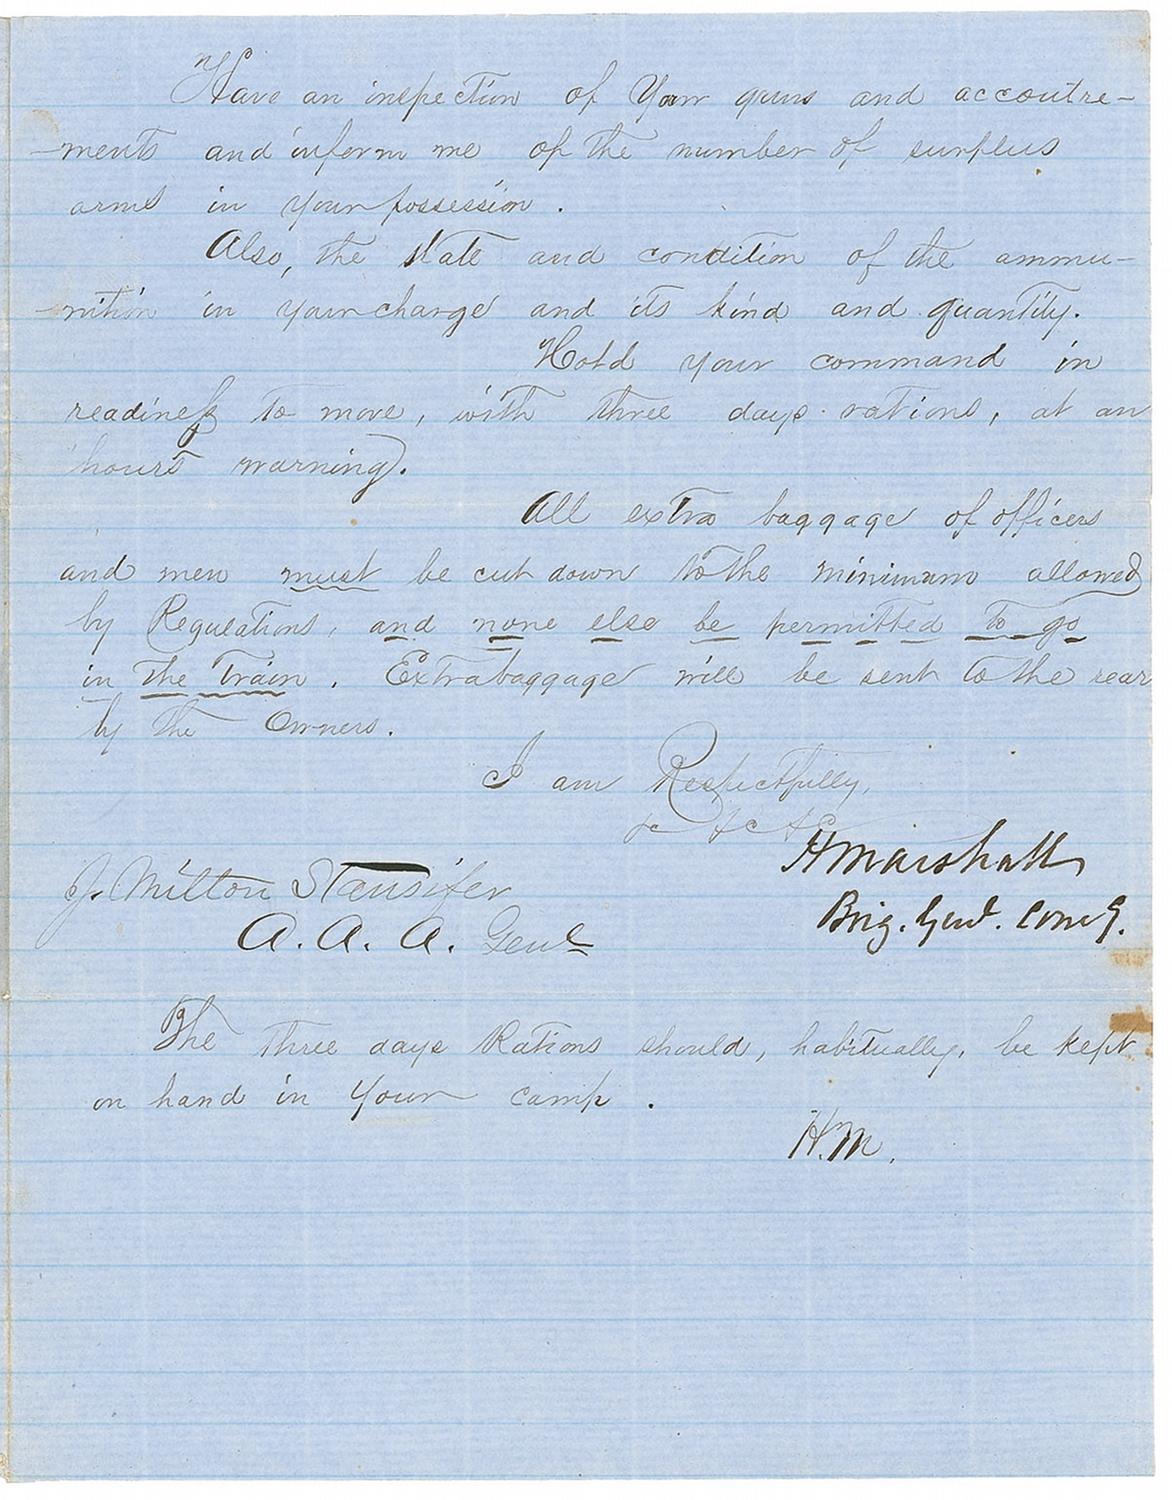 Have an inspection of Your guns and accoutre-
-ments and inform me of the number of surplus
arms in your possession.
Also, the state and condition of the ammu-
-nition in your charge and its kind and quantity.
Hold your command in
readiness to move, with three days rations, at an
hours warning.
All extra baggage of officers
and men must be cut down to the minimum allowed
by Regulations, and none else be permitted to go
in the Train. Extra baggage will be sent to the rear
by the Owners.
I am Respectfully,
&c &c &c
H Marshall
Brig. Genl. Comg.
J. Milton Stansifer
A. A. A. Genl
The three days Rations should, habitually, be kept
on hand in Your camp.
H.M.